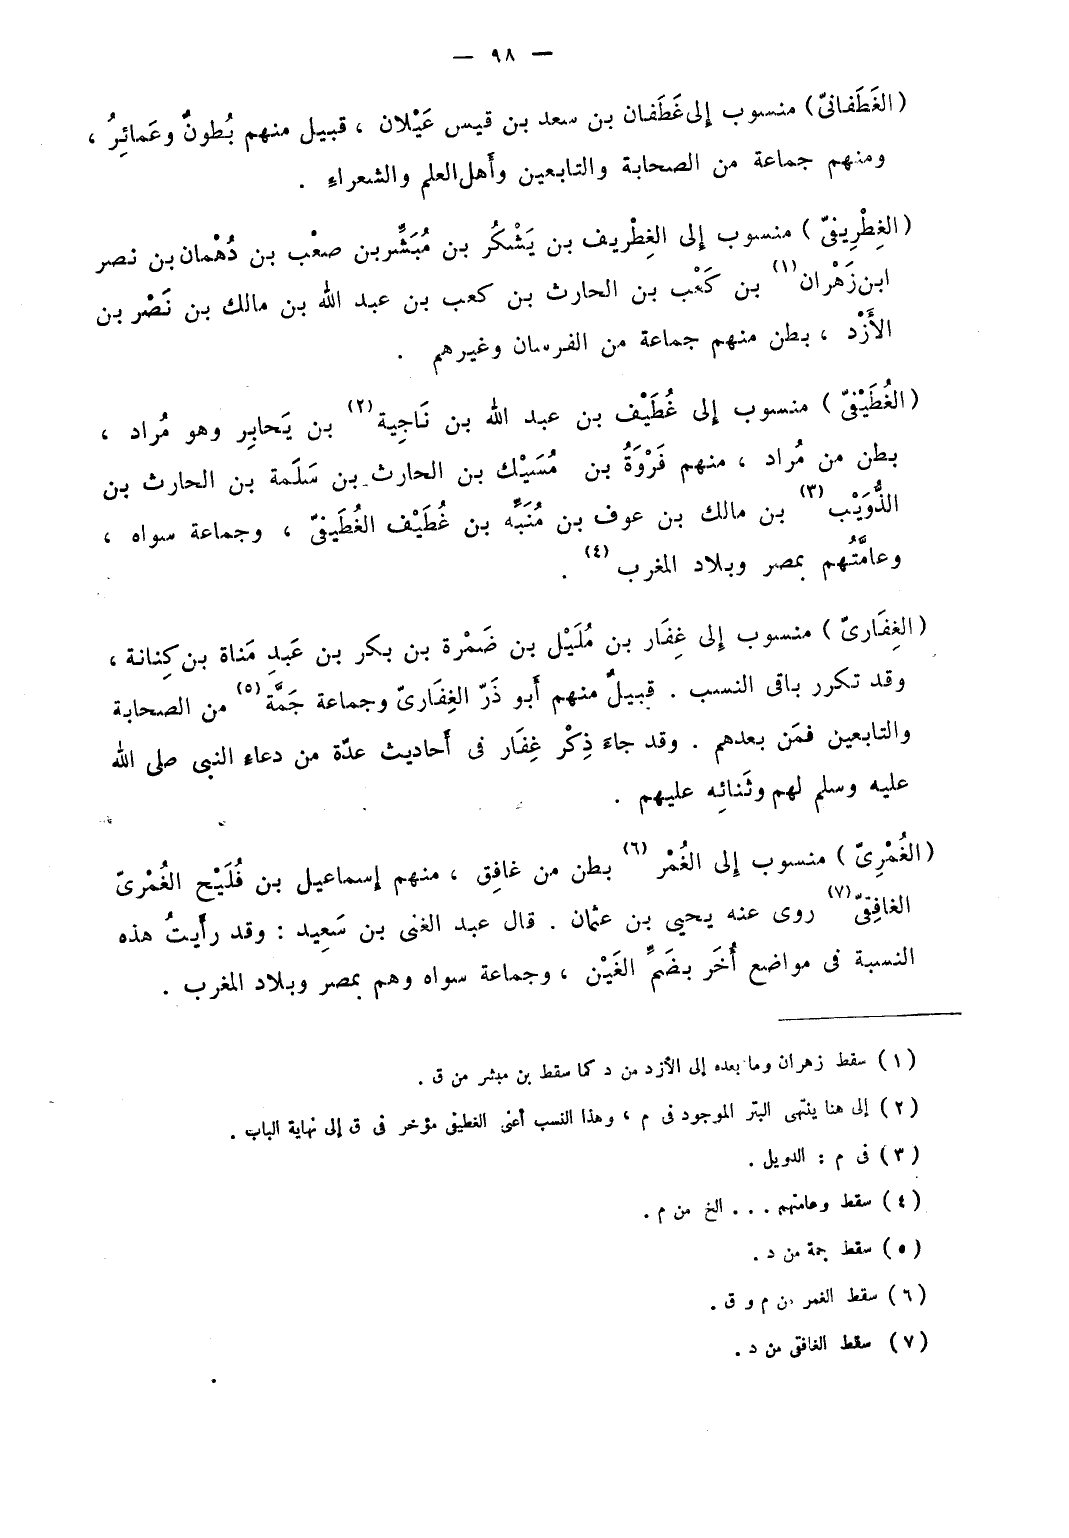 — ٩٨ —
(الغَطَفانىّ) منسوب إلى غَطَفان بن سعد بن قيس عَيْلان ، قبيل منهم بُطونٌ وعَمائِرُ ،
ومنهم جماعة من الصحابة والتابعين وأهل العلم والشعراء .
(الغِطْرِيفىّ) منسوب إلى الغِطْريف بن يَشْكُر بن مُبَشَّر بن صعْب بن دُهْمان بن نصر
ابن زَهْران (١) بن كَعْب بن الحارث بن كعب بن عبد الله بن مالك بن نَصْر بن
الأَزْد ، بطن منهم جماعة من الفرسان وغيرهم .
(الغُطَيْفىّ) منسوب إلى غُطَيْف بن عبد الله بن نَاجِية (٢) بن يَحابِر وهو مُراد ،
بطن من مُراد ، منهم فَرْوَةُ بن مُسَيْك بن الحارث بن سَلَمة بن الحارث بن
الذُّوَيْب (٣) بن مالك بن عوف بن مُنَبَّه بن غُطَيْف الغُطَيفىّ ، وجماعة سواه ،
وعامَّتُهم بمصر وبلاد المغرب (٤) .
(الغِفَارىّ) منسوب إلى غِفَار بن مُلَيْل بن ضَمْرة بن بكر بن عَبدِ مَناة بن كِنانة ،
وقد تكرر باقى النسب . قبيلٌ منهم أبو ذَرّ الغِفَارىّ وجماعة جَمَّة (٥) من الصحابة
والتابعين فمَن بعدهم . وقد جاءَ ذِكْر غِفَار فى أَحاديث عدّة من دعاء النبى صلى الله
عليه وسلم لهم وثَنائِه عليهم .
(الغُمْرِىّ) منسوب إلى الغُمْر (٦) بطن من غافِق ، منهم إسماعيل بن فُلَيْح الغُمْرىّ
الغافِقىّ (٧) روى عنه يحيى بن عثمان . قال عبد الغنى بن سَعِيد : وقد رأَيتُ هذه
النسبة فى مواضع أُخَر بضَمِّ الغَيْن ، وجماعة سواه وهم بمصر وبلاد المغرب .
(١) سقط زهران وما بعده إلى الأزد من د كما سقط بن مبشر من ق .
(٢) إلى هنا ينتهى البتر الموجود فى م ، وهذا النسب أعنى الغطيفى مؤخر فى ق إلى نهاية الباب .
(٣) فى م : الدويل .
(٤) سقط وعامتهم . . . الخ من م .
(٥) سقط جمة من د .
(٦) سقط الغمر من م و ق .
(٧) سقط الغافقى من د .